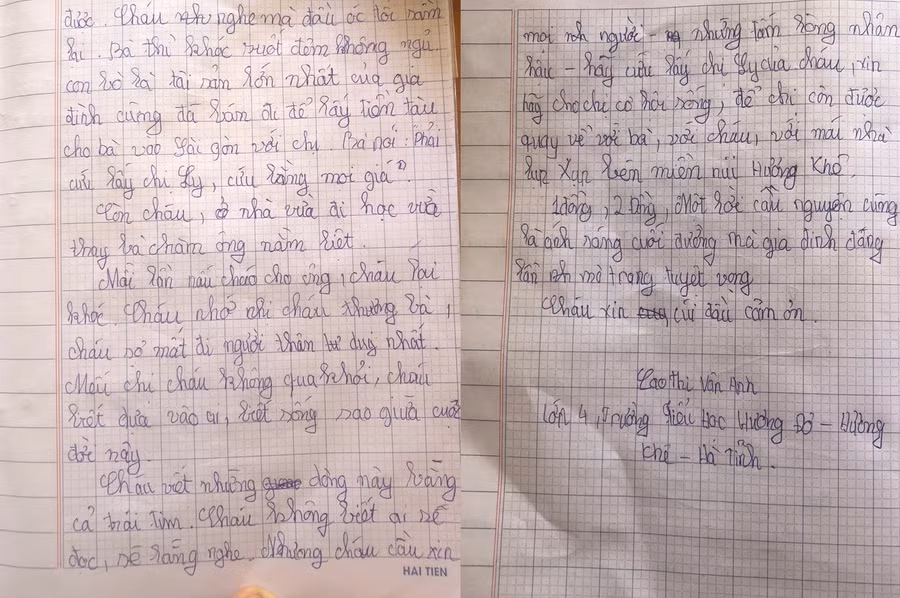 được. Cháu nghe mà đầu óc tối sầm
lại. Bà thì khóc suốt đêm không ngủ
con bò là tài sản lớn nhất của gia
đình cũng đã bán đi để lấy tiền tàu
cho bà vào Sài gòn với chị. Bà nói: "Phải
cứu lấy chị Ly, cứu bằng mọi giá".
Còn cháu, ở nhà vừa đi học vừa
thay bà chăm ông nằm liệt.
Mỗi lần nấu cháo cho ông, cháu lại
khóc. Cháu nhớ chị cháu thương bà,
cháu sợ mất đi người thân duy nhất.
Mếu chị cháu không qua khỏi, cháu
biết dựa vào ai, biết sống sao giữa cuộc
đời này.
Cháu viết những dòng này bằng
cả trái tim. Cháu không biết ai sẽ
đọc, sẽ lắng nghe. Nhưng cháu cầu xin
HAI TIEN
mọi người - những tấm lòng nhân
hậu - hãy cứu lấy chị Ly của cháu, xin
hãy cho chị cơ hội sống, để chị còn được
quay về với bà, với cháu, với mái nhà
lụp Xụp trên miền núi Hương Khê.
1 đồng, 2 đồng, Một lời cầu nguyện cũng
là ánh sáng cuối đường mà gia đình đang
lần mò trong tuyệt vọng
Cháu xin cúi đầu cảm ơn.
Cao Thị Vân Anh
Lớp 4, Trường Tiểu Học Hương Đô - Hương
Khê - Hà Tĩnh.